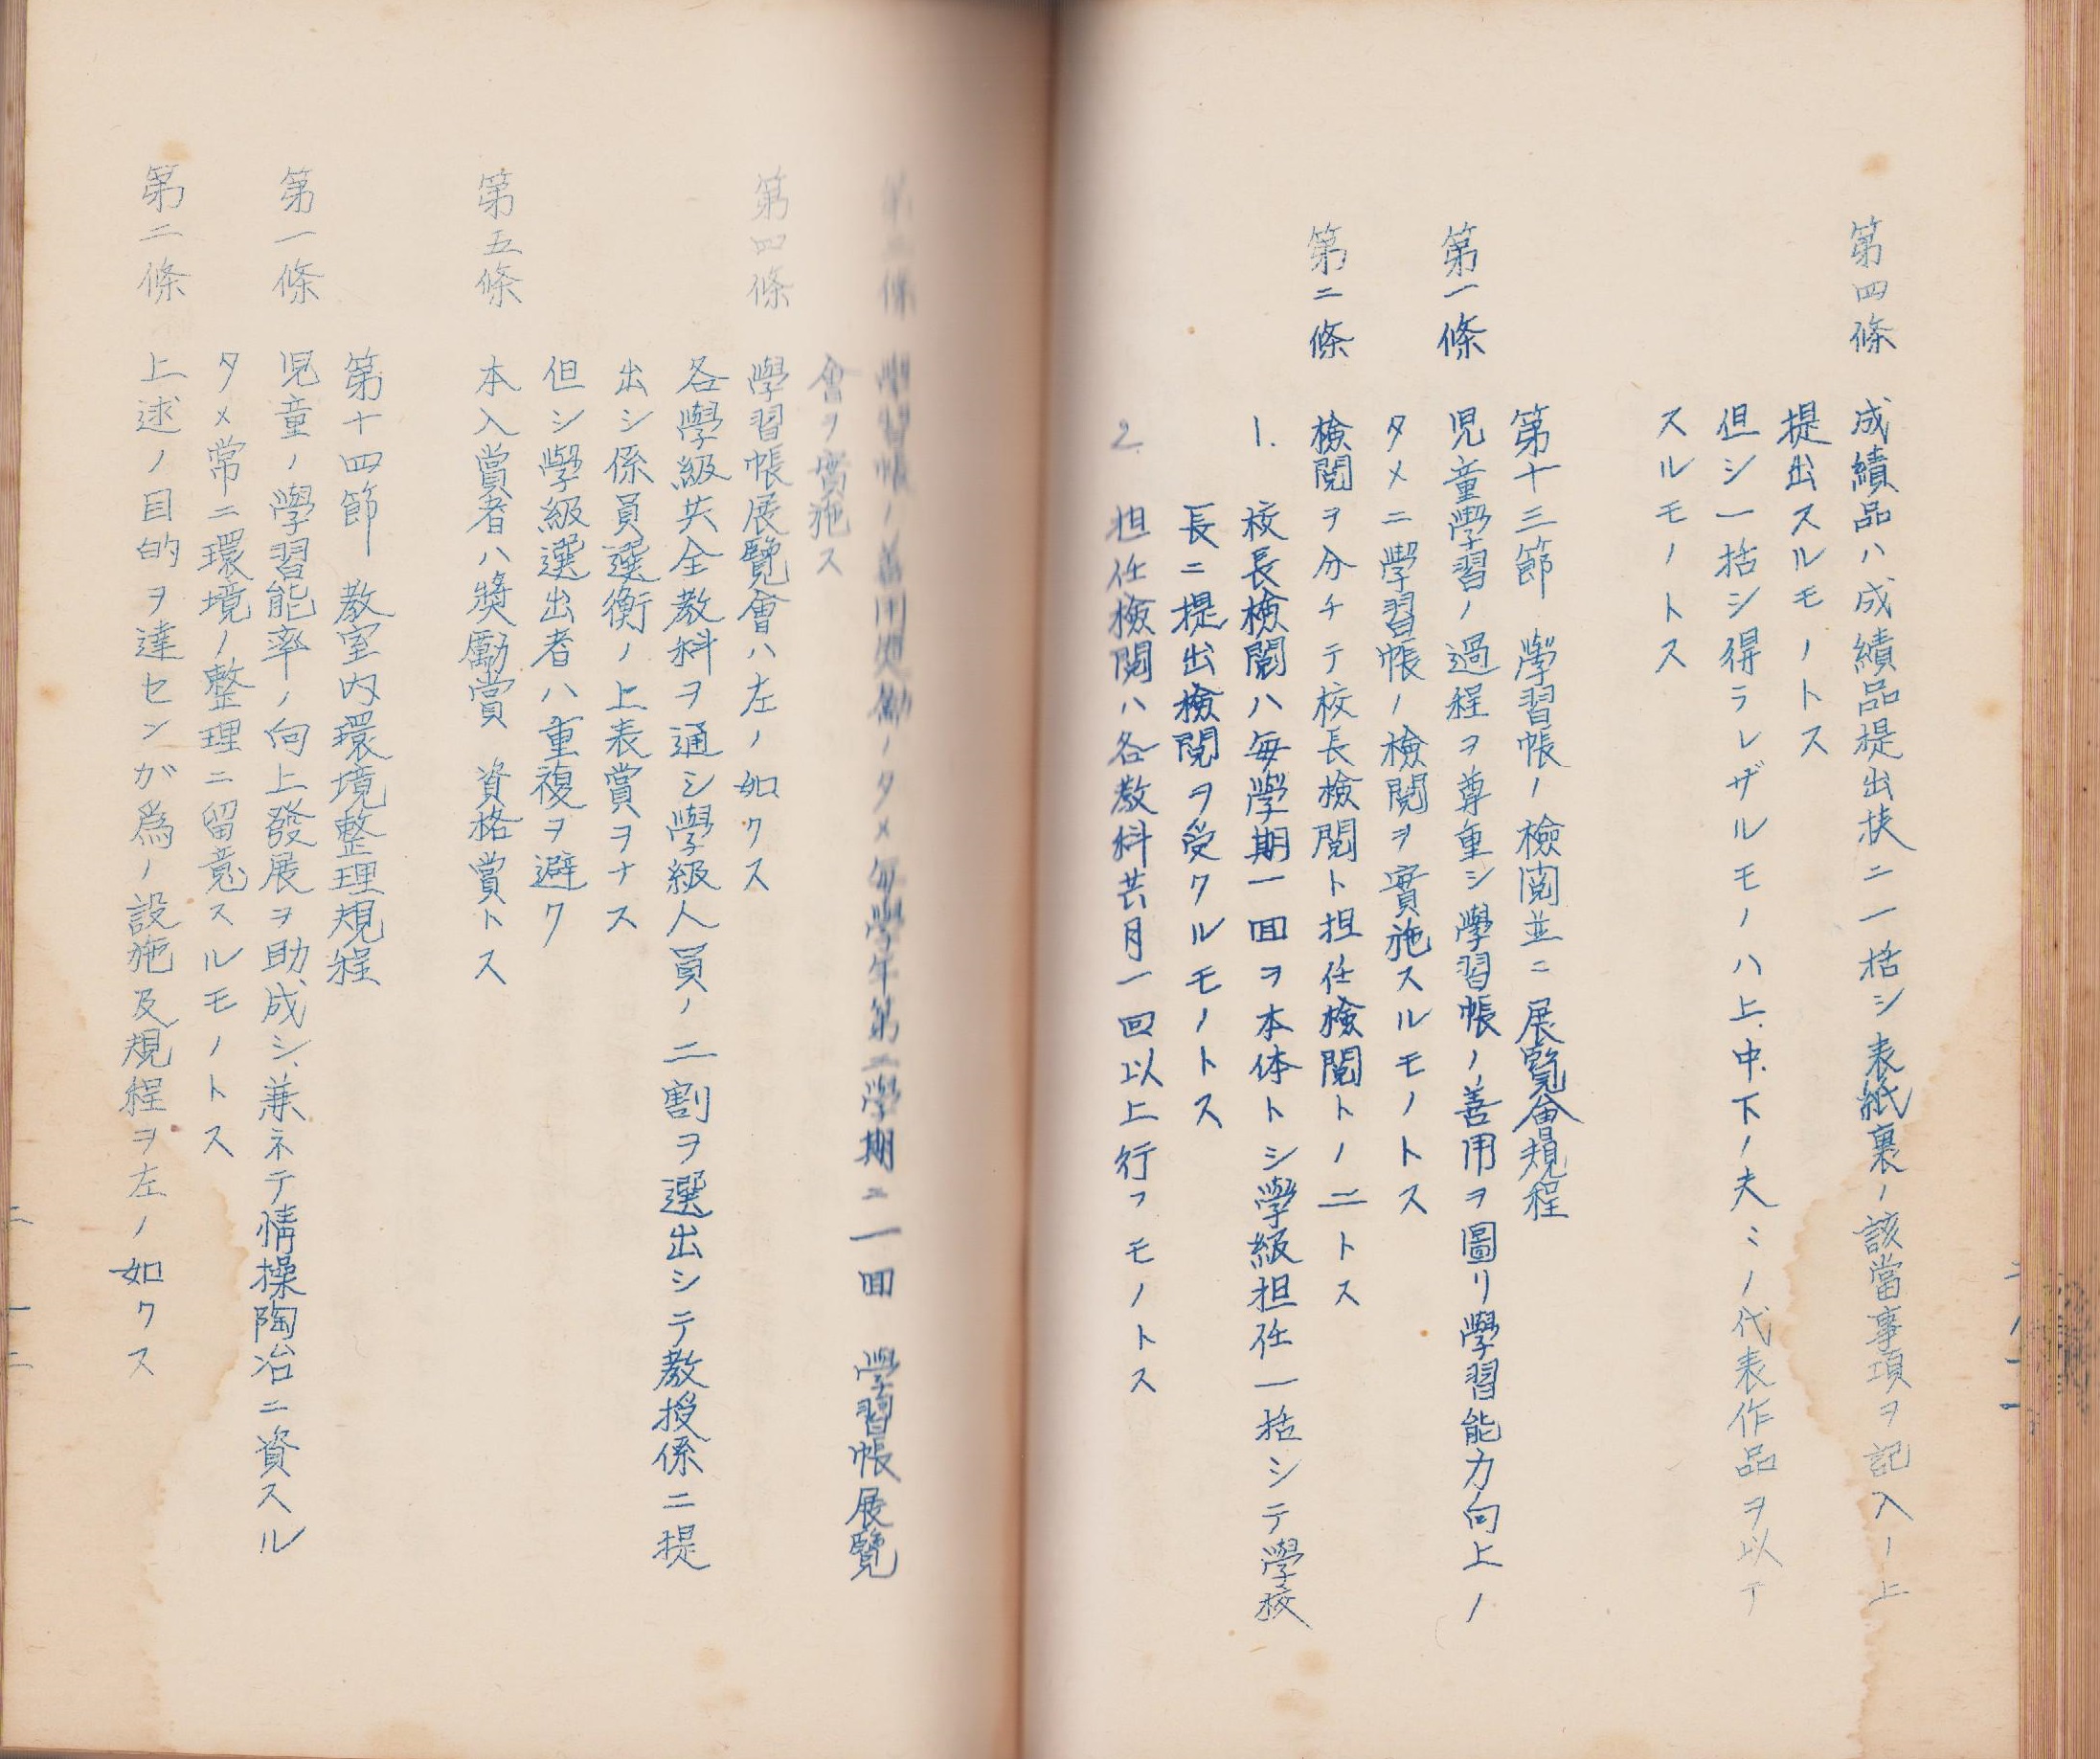 第四條 成績品ハ成績品提出挟ニ一括シ表紙裏ノ該當事項ヲ記入ノ上
提出スルモノトス
但シ一括シ得ラレザルモノハ上.中.下ノ夫ミノ代表作品ヲ以テ
スルモノトス
第十三節 學習帳ノ檢閲並ニ展覽會規程
第一條 児童學習ノ過程ヲ尊重シ學習帳ノ善用ヲ圖リ學習能力向上ノ
タメニ學習帳ノ檢閲ヲ實施スルモノトス
第二條 檢閲ヲ分チテ校長檢閲ト担任檢閲トノ二トス
1. 校長檢閲ハ毎學期一回ヲ本体トシ學級担任一括シテ學校
長ニ提出檢閲ヲ受クルモノトス
2. 担任檢閲ハ各教科共月一回以上行フモノトス
第三條 學習帳ノ善用奬勵ノタメ毎學年第二學期ニ一回 學習帳展覽
會ヲ實施ス
第四條 學習帳展覽會ハ左ノ如クス
各學級共全教科ヲ通シ學級人員ノ二割ヲ選出シテ教授係ニ提
出シ係員選衡ノ上表賞ヲナス
但シ學級選出者ハ重複ヲ避ク
第五條 本入賞者ハ奬勵賞 資格賞トス
第十四節 教室内環境整理規程
第一條 児童ノ學習能率ノ向上發展ヲ助成シ、兼ネテ情操陶冶ニ資スル
タメ常ニ環境ノ整理ニ留意スルモノトス
第二條 上述ノ目的ヲ達センが爲ノ設施及規程ヲ左ノ如クス